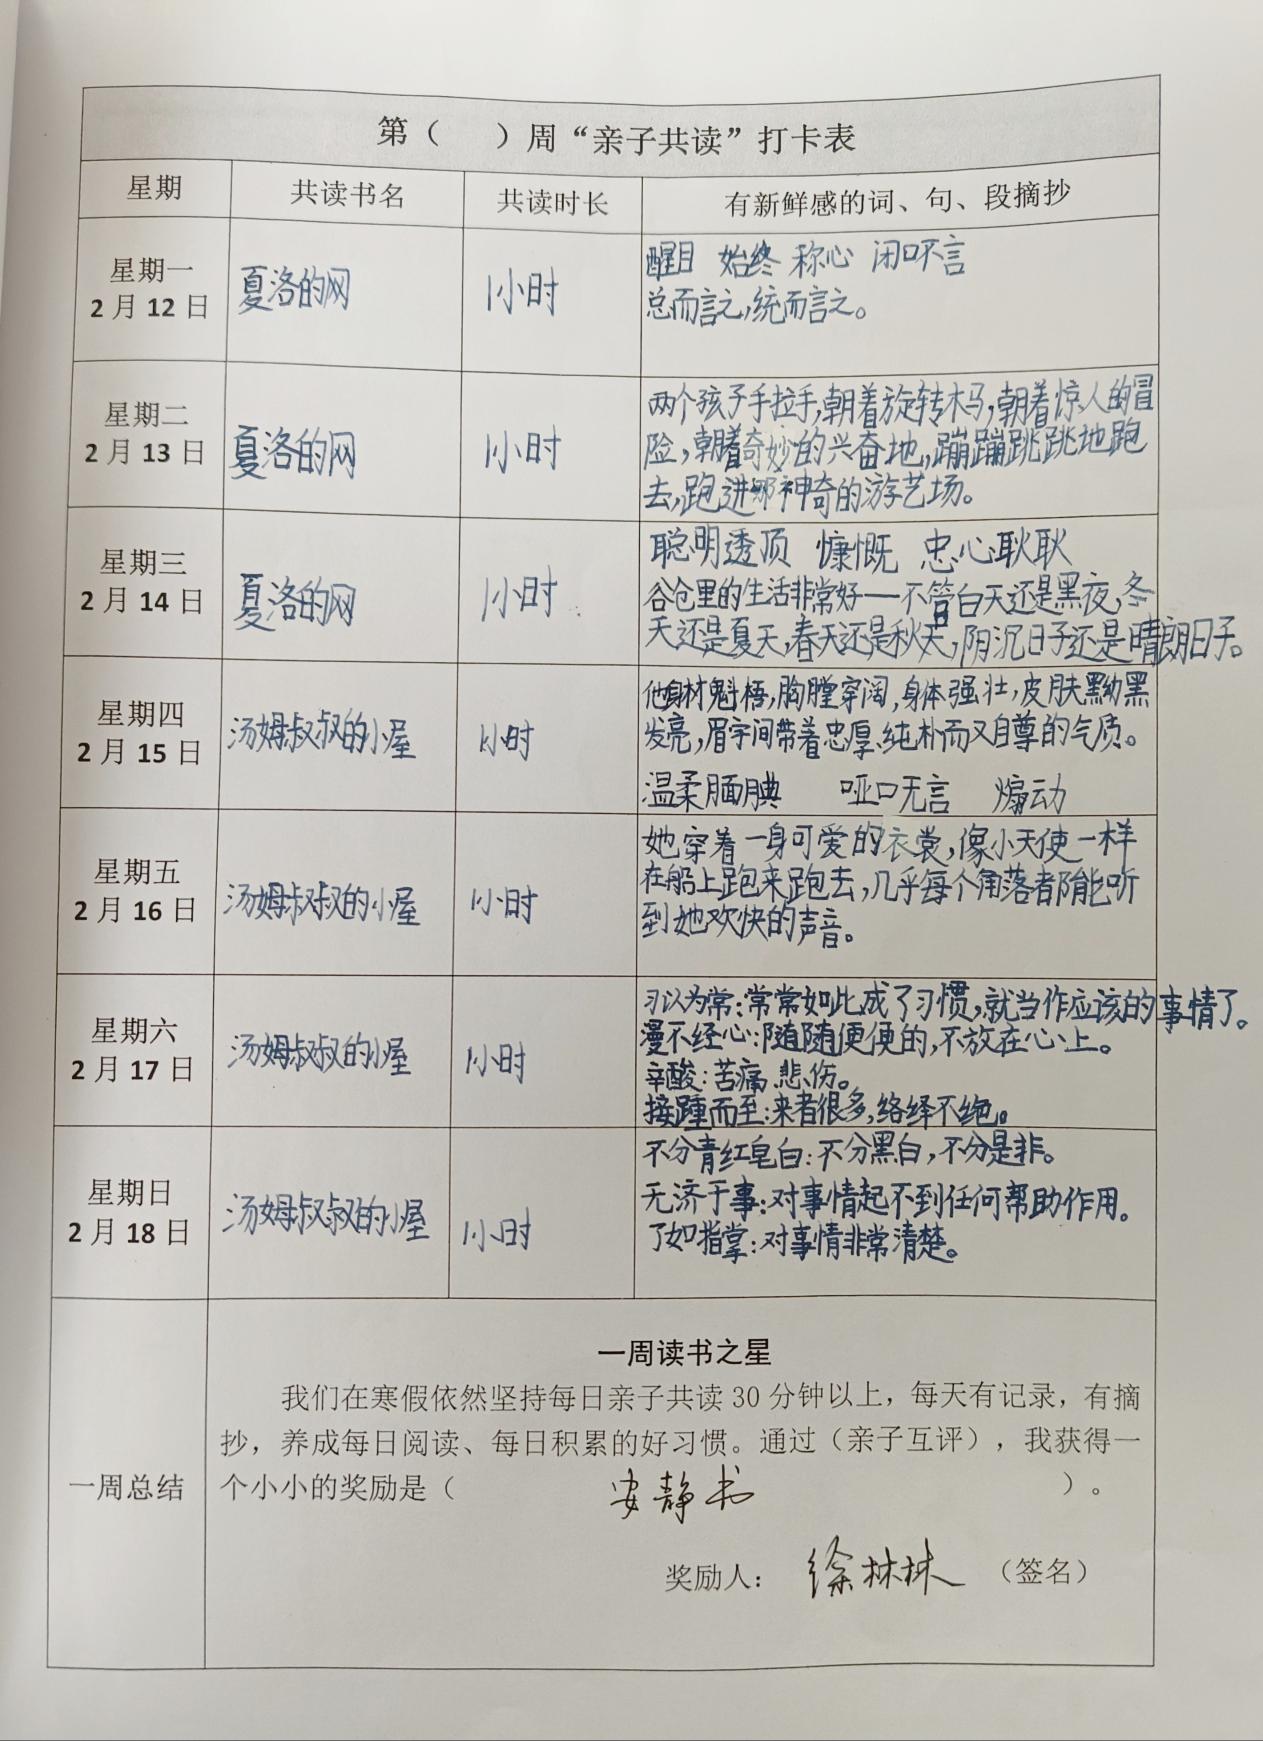 第（ ）周“亲子共读”打卡表
星期 共读书名 共读时长 有新鲜感的词、句、段摘抄
星期一
2月12日
夏洛的网
1小时
醒目 始终 称心 闭口不言
总而言之,统而言之。
星期二
2月13日
夏洛的网
1小时
两个孩子手拉手,朝着旋转木马,朝着惊人的冒
险,朝着奇妙的兴奋地,蹦蹦跳跳地跑
去,跑进那神奇的游艺场。
星期三
2月14日
夏洛的网
1小时
聪明透顶 慷慨 忠心耿耿
谷仓里的生活非常好——不管白天还是黑夜,冬
天还是夏天,春天还是秋天,阴沉日子还是晴朗日子。
星期四
2月15日
汤姆叔叔的小屋
1小时
他身材魁梧,胸膛穿阔,身体强壮,皮肤黑黝黑
发亮,眉宇间带着忠厚、纯朴而又自尊的气质。
温柔腼腆 哑口无言 煽动
星期五
2月16日
汤姆叔叔的小屋
1小时
她穿着一身可爱的衣裳,像小天使一样
在船上跑来跑去,几乎每个角落都能听
到她欢快的声音。
星期六
2月17日
汤姆叔叔的小屋
1小时
习以为常:常常如此成了习惯,就当作应该的事情了。
漫不经心:随随便便的,不放在心上。
辛酸:苦痛 悲伤。
接踵而至:来者很多,络绎不绝。
星期日
2月18日
汤姆叔叔的小屋
1小时
不分青红皂白:不分黑白,不分是非。
无济于事:对事情起不到任何帮助作用。
了如指掌:对事情非常清楚。
一周总结
一周读书之星
我们在寒假依然坚持每日亲子共读30分钟以上，每天有记录，有摘
抄，养成每日阅读、每日积累的好习惯。通过（亲子互评），我获得一
个小小的奖励是（ 安静书 ）。
奖励人： 徐林林 （签名）